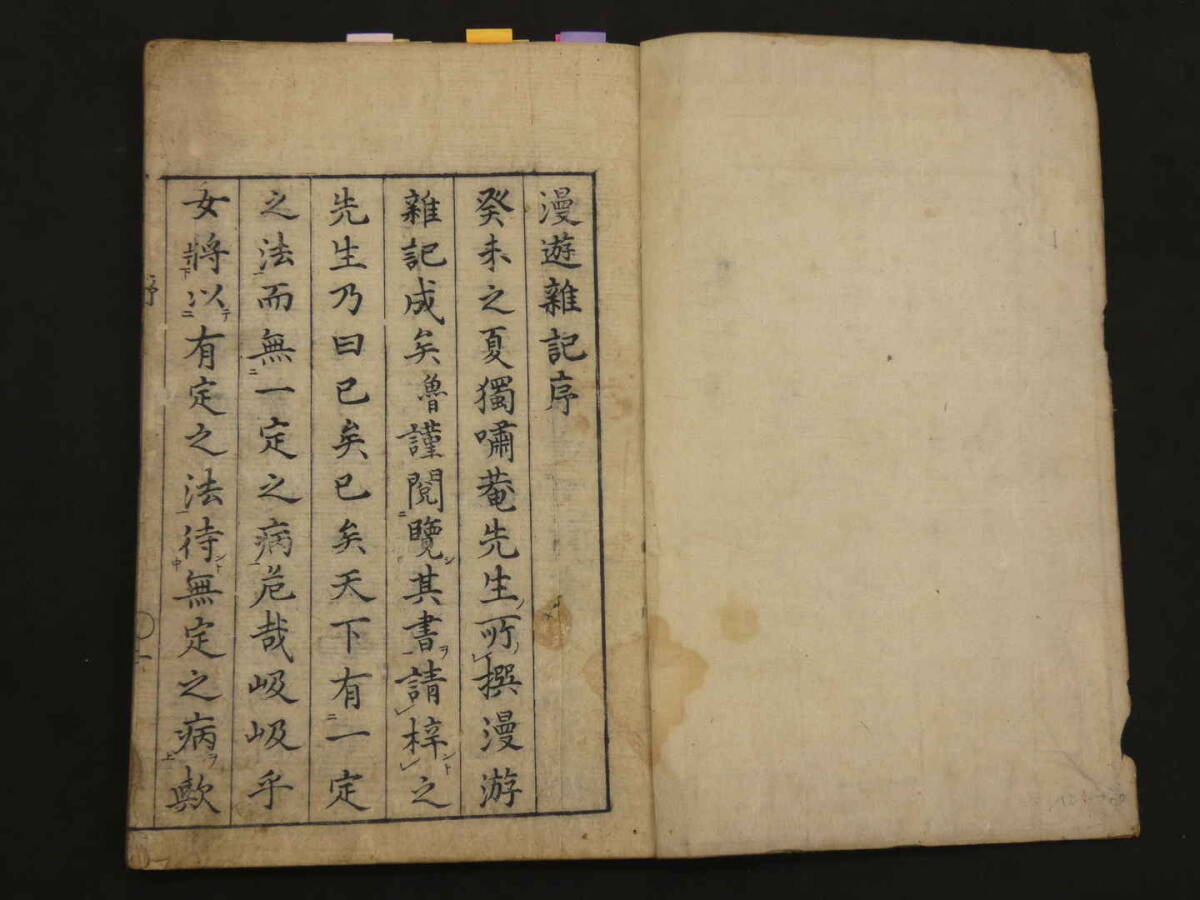 漫遊雜記序
癸未之夏獨嘯菴先生所撰漫游
雜記成矣魯謹閱覽其書請梓之
先生乃曰已矣已矣天下有一定
之法而無一定之病危哉岌岌乎
女將以有定之法待無定之病歟
序